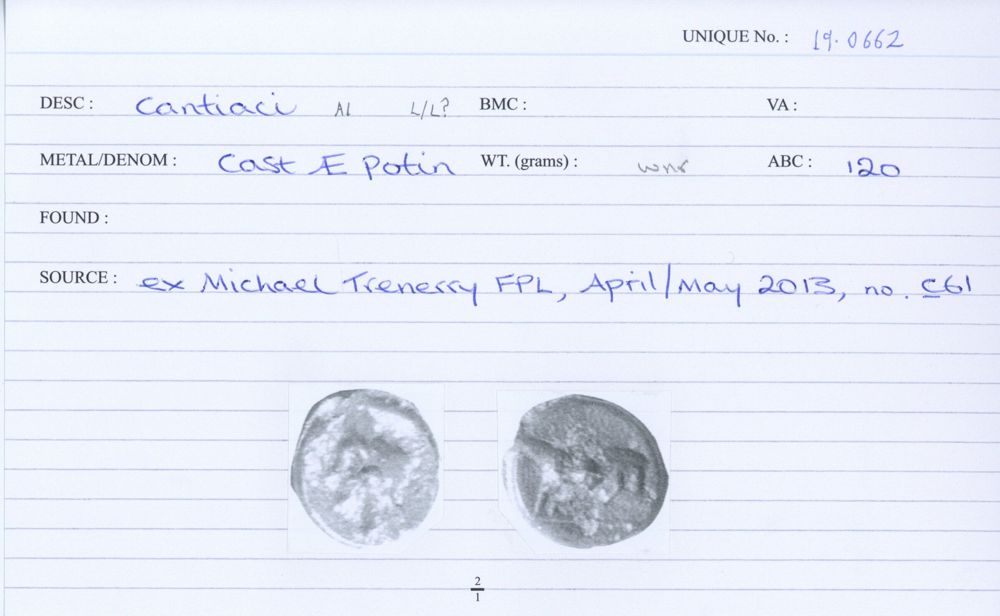 UNIQUE No. : 19.0662
DESC : Cantiaci A1 L/L? BMC : VA :
METAL/DENOM : Cast Æ Potin WT. (grams) : wnr ABC : 120
FOUND :
SOURCE : ex Michael Trenerry FPL, April/May 2013, no. C61
2
1